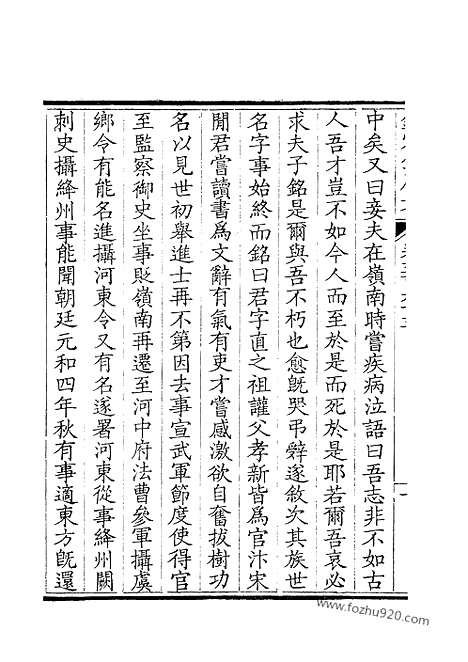 中矣又曰妾夫在嶺南時嘗疾病泣語曰吾志非不如古
人吾才豈不如今人而至於是而死於是耶若爾吾哀必
求夫子銘是爾與吾不朽也愈旣哭弔辤遂敘次其族世
名字事始終而銘曰君字直之祖讙父孝新皆爲官汴宋
閒君嘗讀書爲文辭有氣有吏才嘗感激欲自奮拔樹功
名以見世初舉進士再不第因去事宣武軍節度使得官
至監察御史坐事貶嶺南再遷至河中府法曹參軍攝虞
鄉令有能名進攝河東令又有名遂署河東從事絳州闕
刺史攝絳州事能聞朝廷元和四年秋有事適東方旣還
www.fozhu920.com